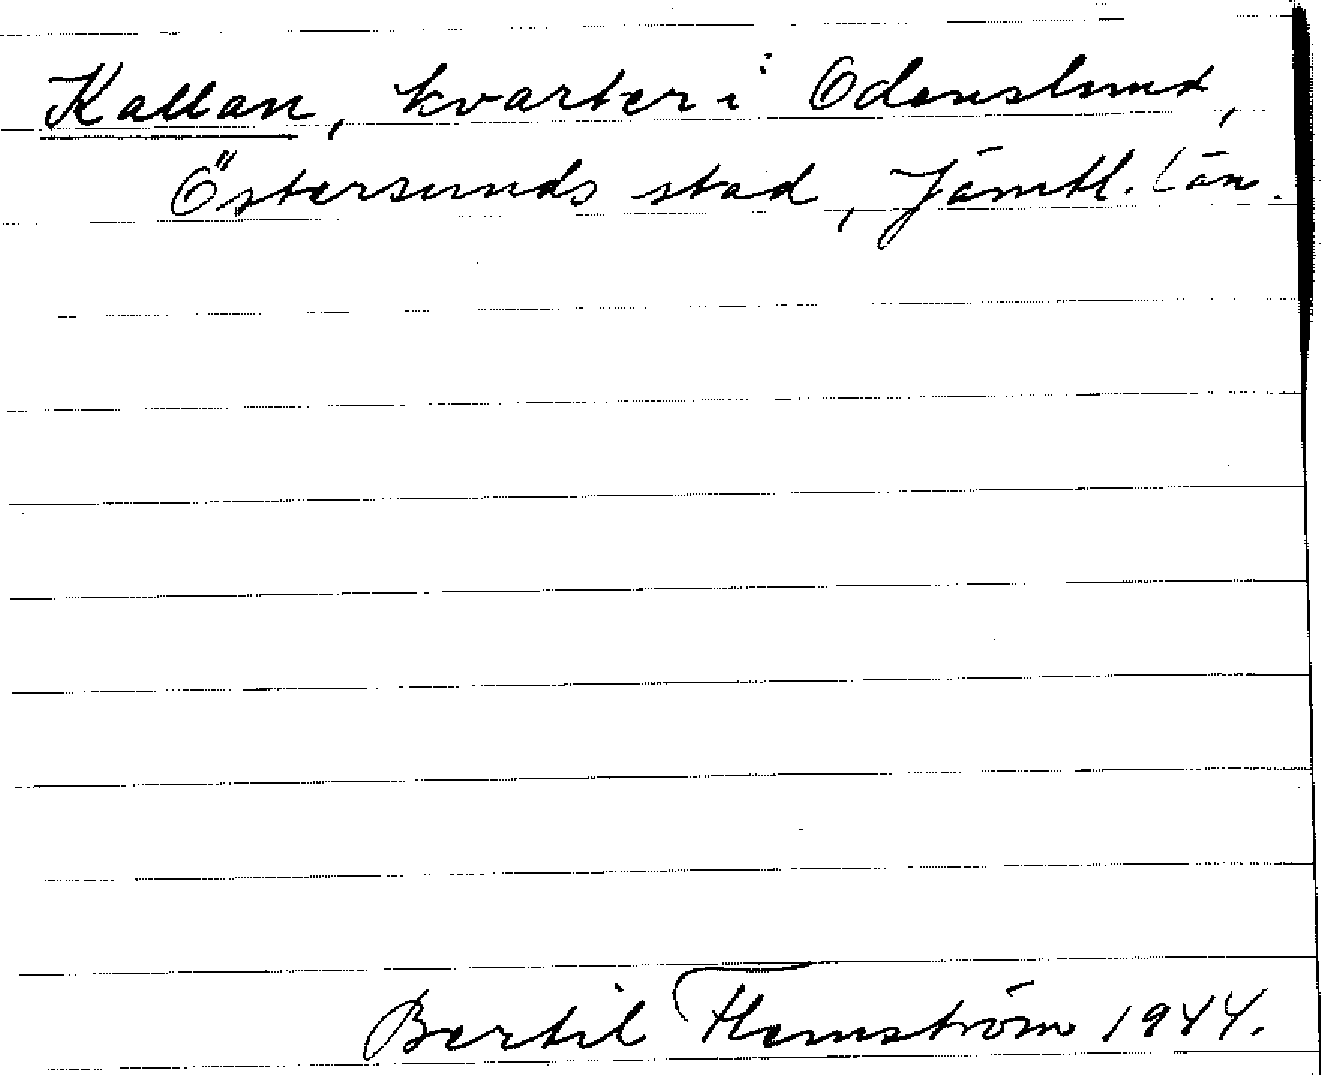 Kallan, kvarter i Odenslund,
Östersunds stad, Jämtl. län.
Bertil Flemström 1944.